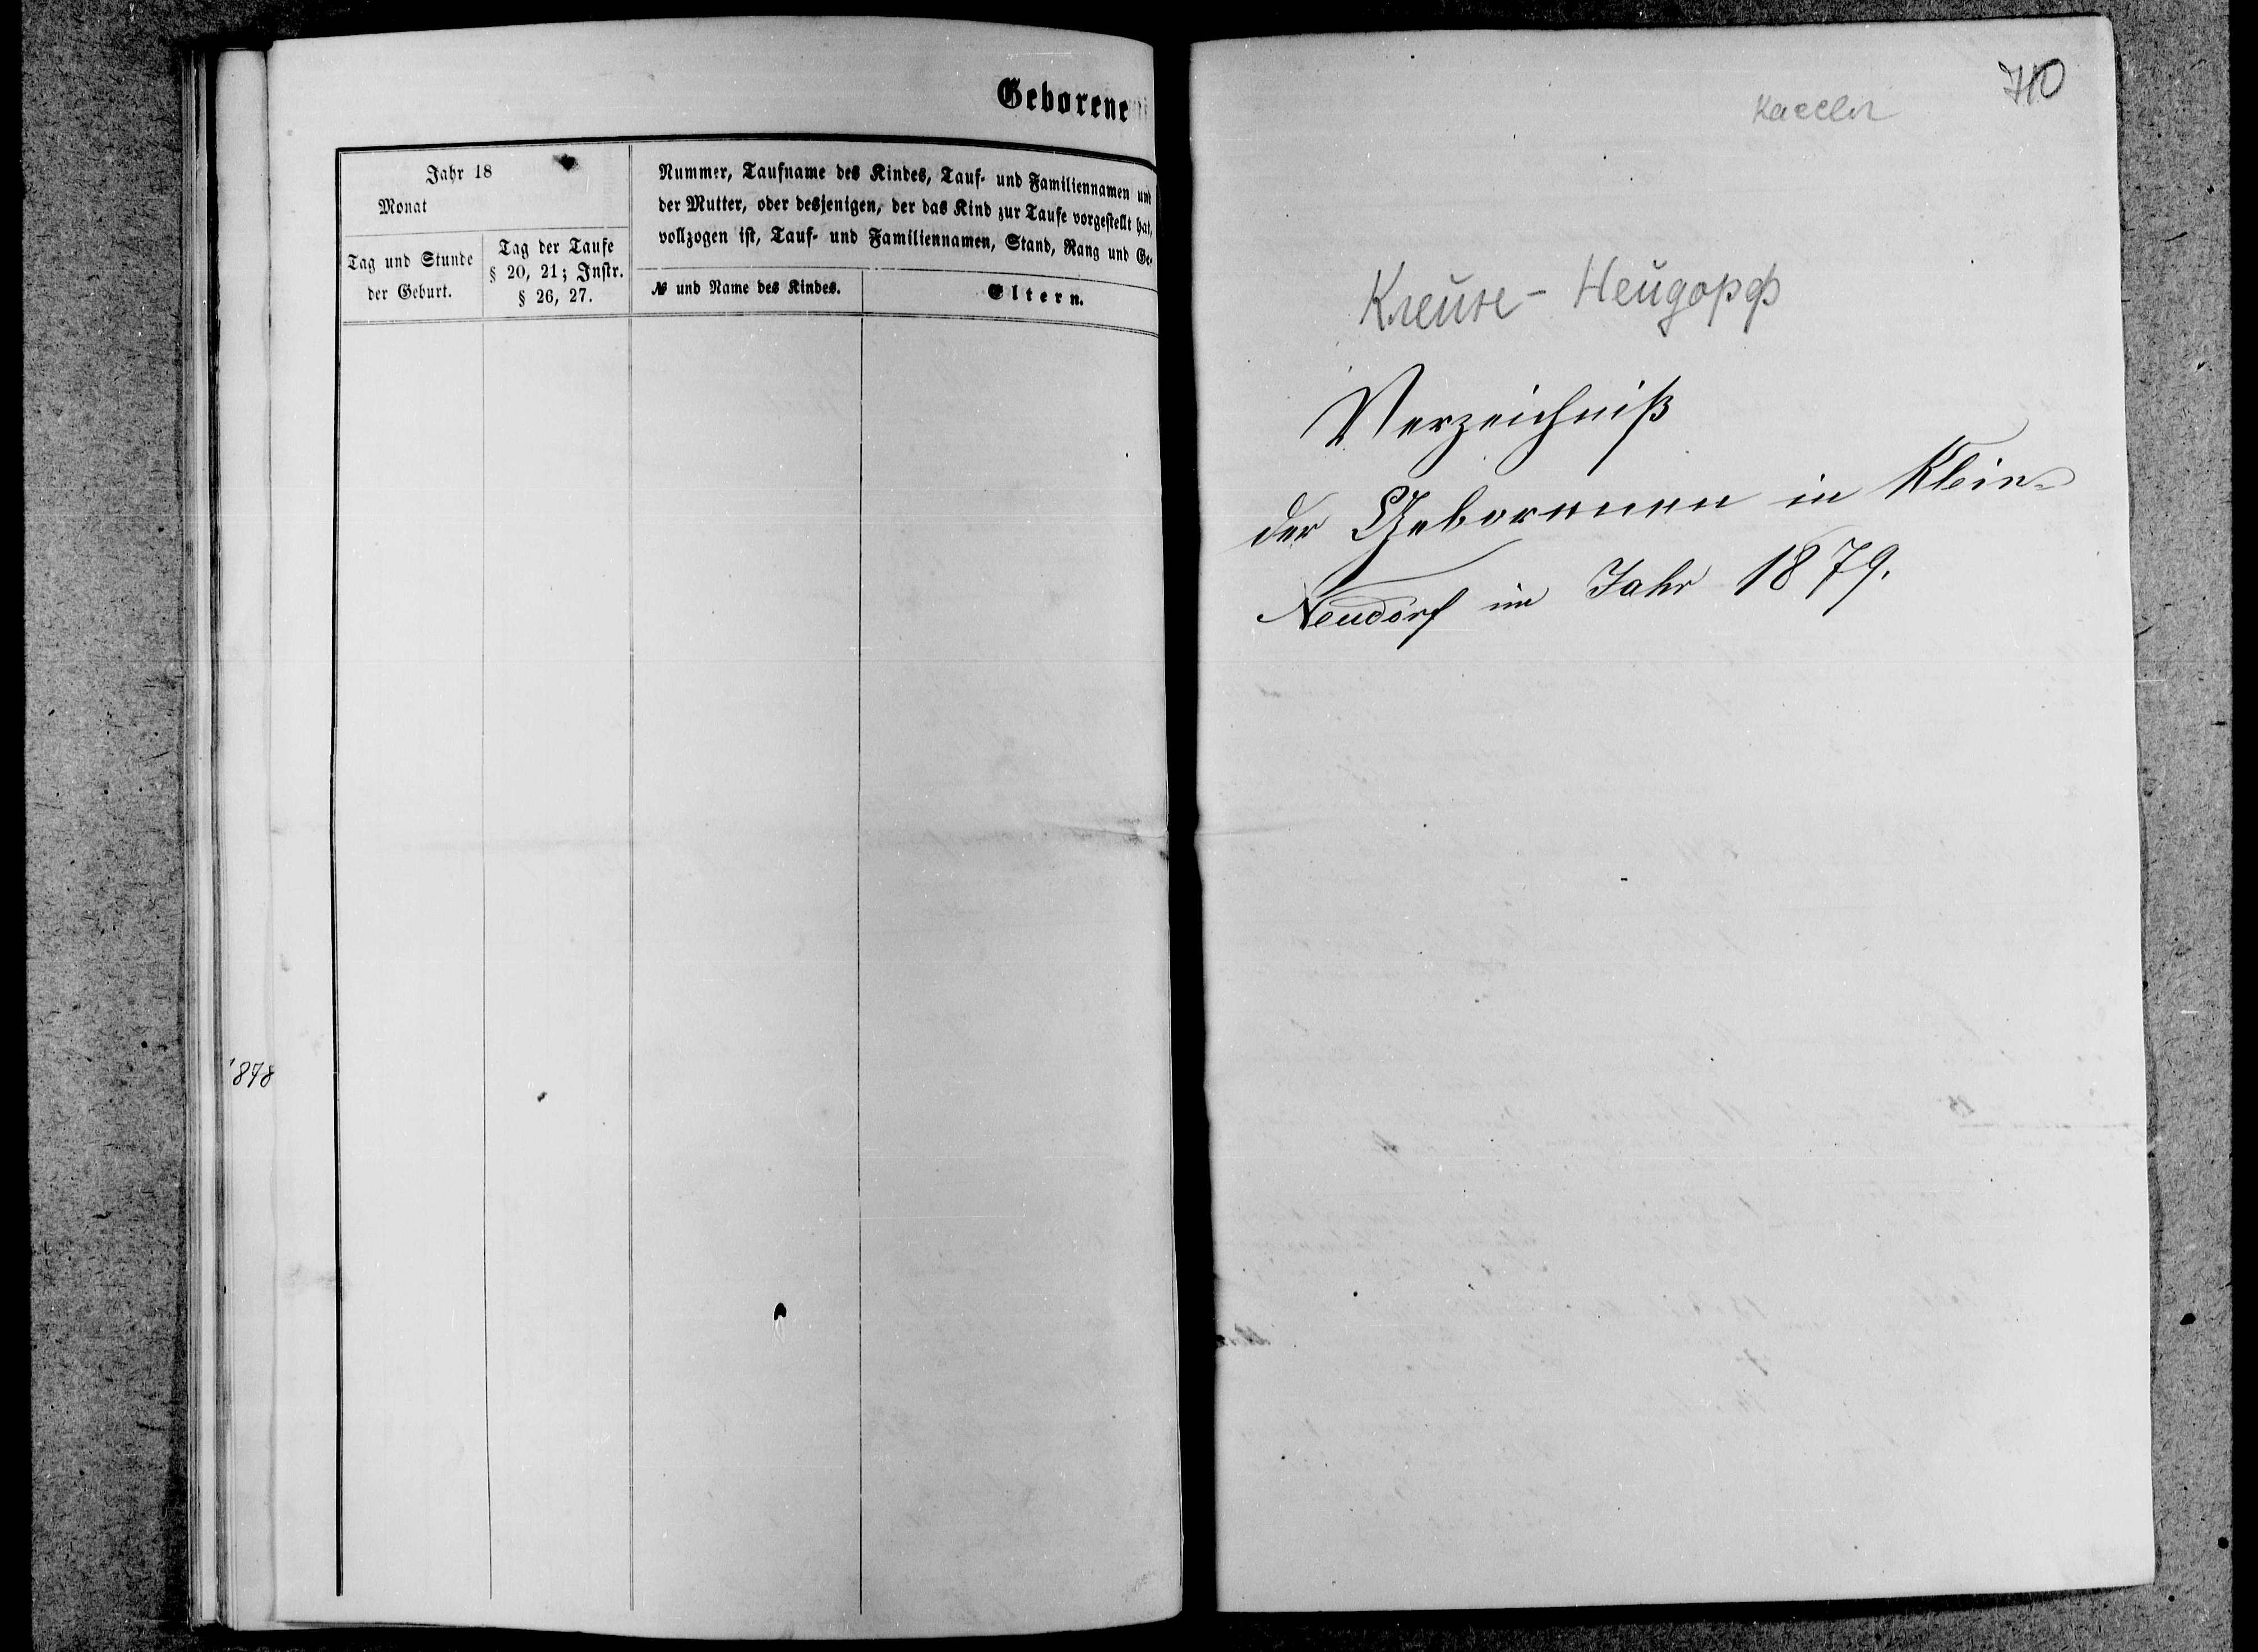 Geborene
Jahr 18
Monat
Tag und Stunde
der Geburt.
Tag der Taufe
§ 20, 21; Instr.
§ 26, 27.
Nummer, Taufname des Kindes, Tauf- und Familiennamen und
der Mutter, oder desjenigen, der das Kind zur Taufe vorgestellt hat,
vollzogen ist, Tauf- und Familiennamen, Stand, Rang und Ge-
№ und Name des Kindes.
Eltern.
1878
710
Кассель
Клейне-Нейдорф
Verzeichniß
der Geborenen in Klein-
Neudorf im Jahr 1879.